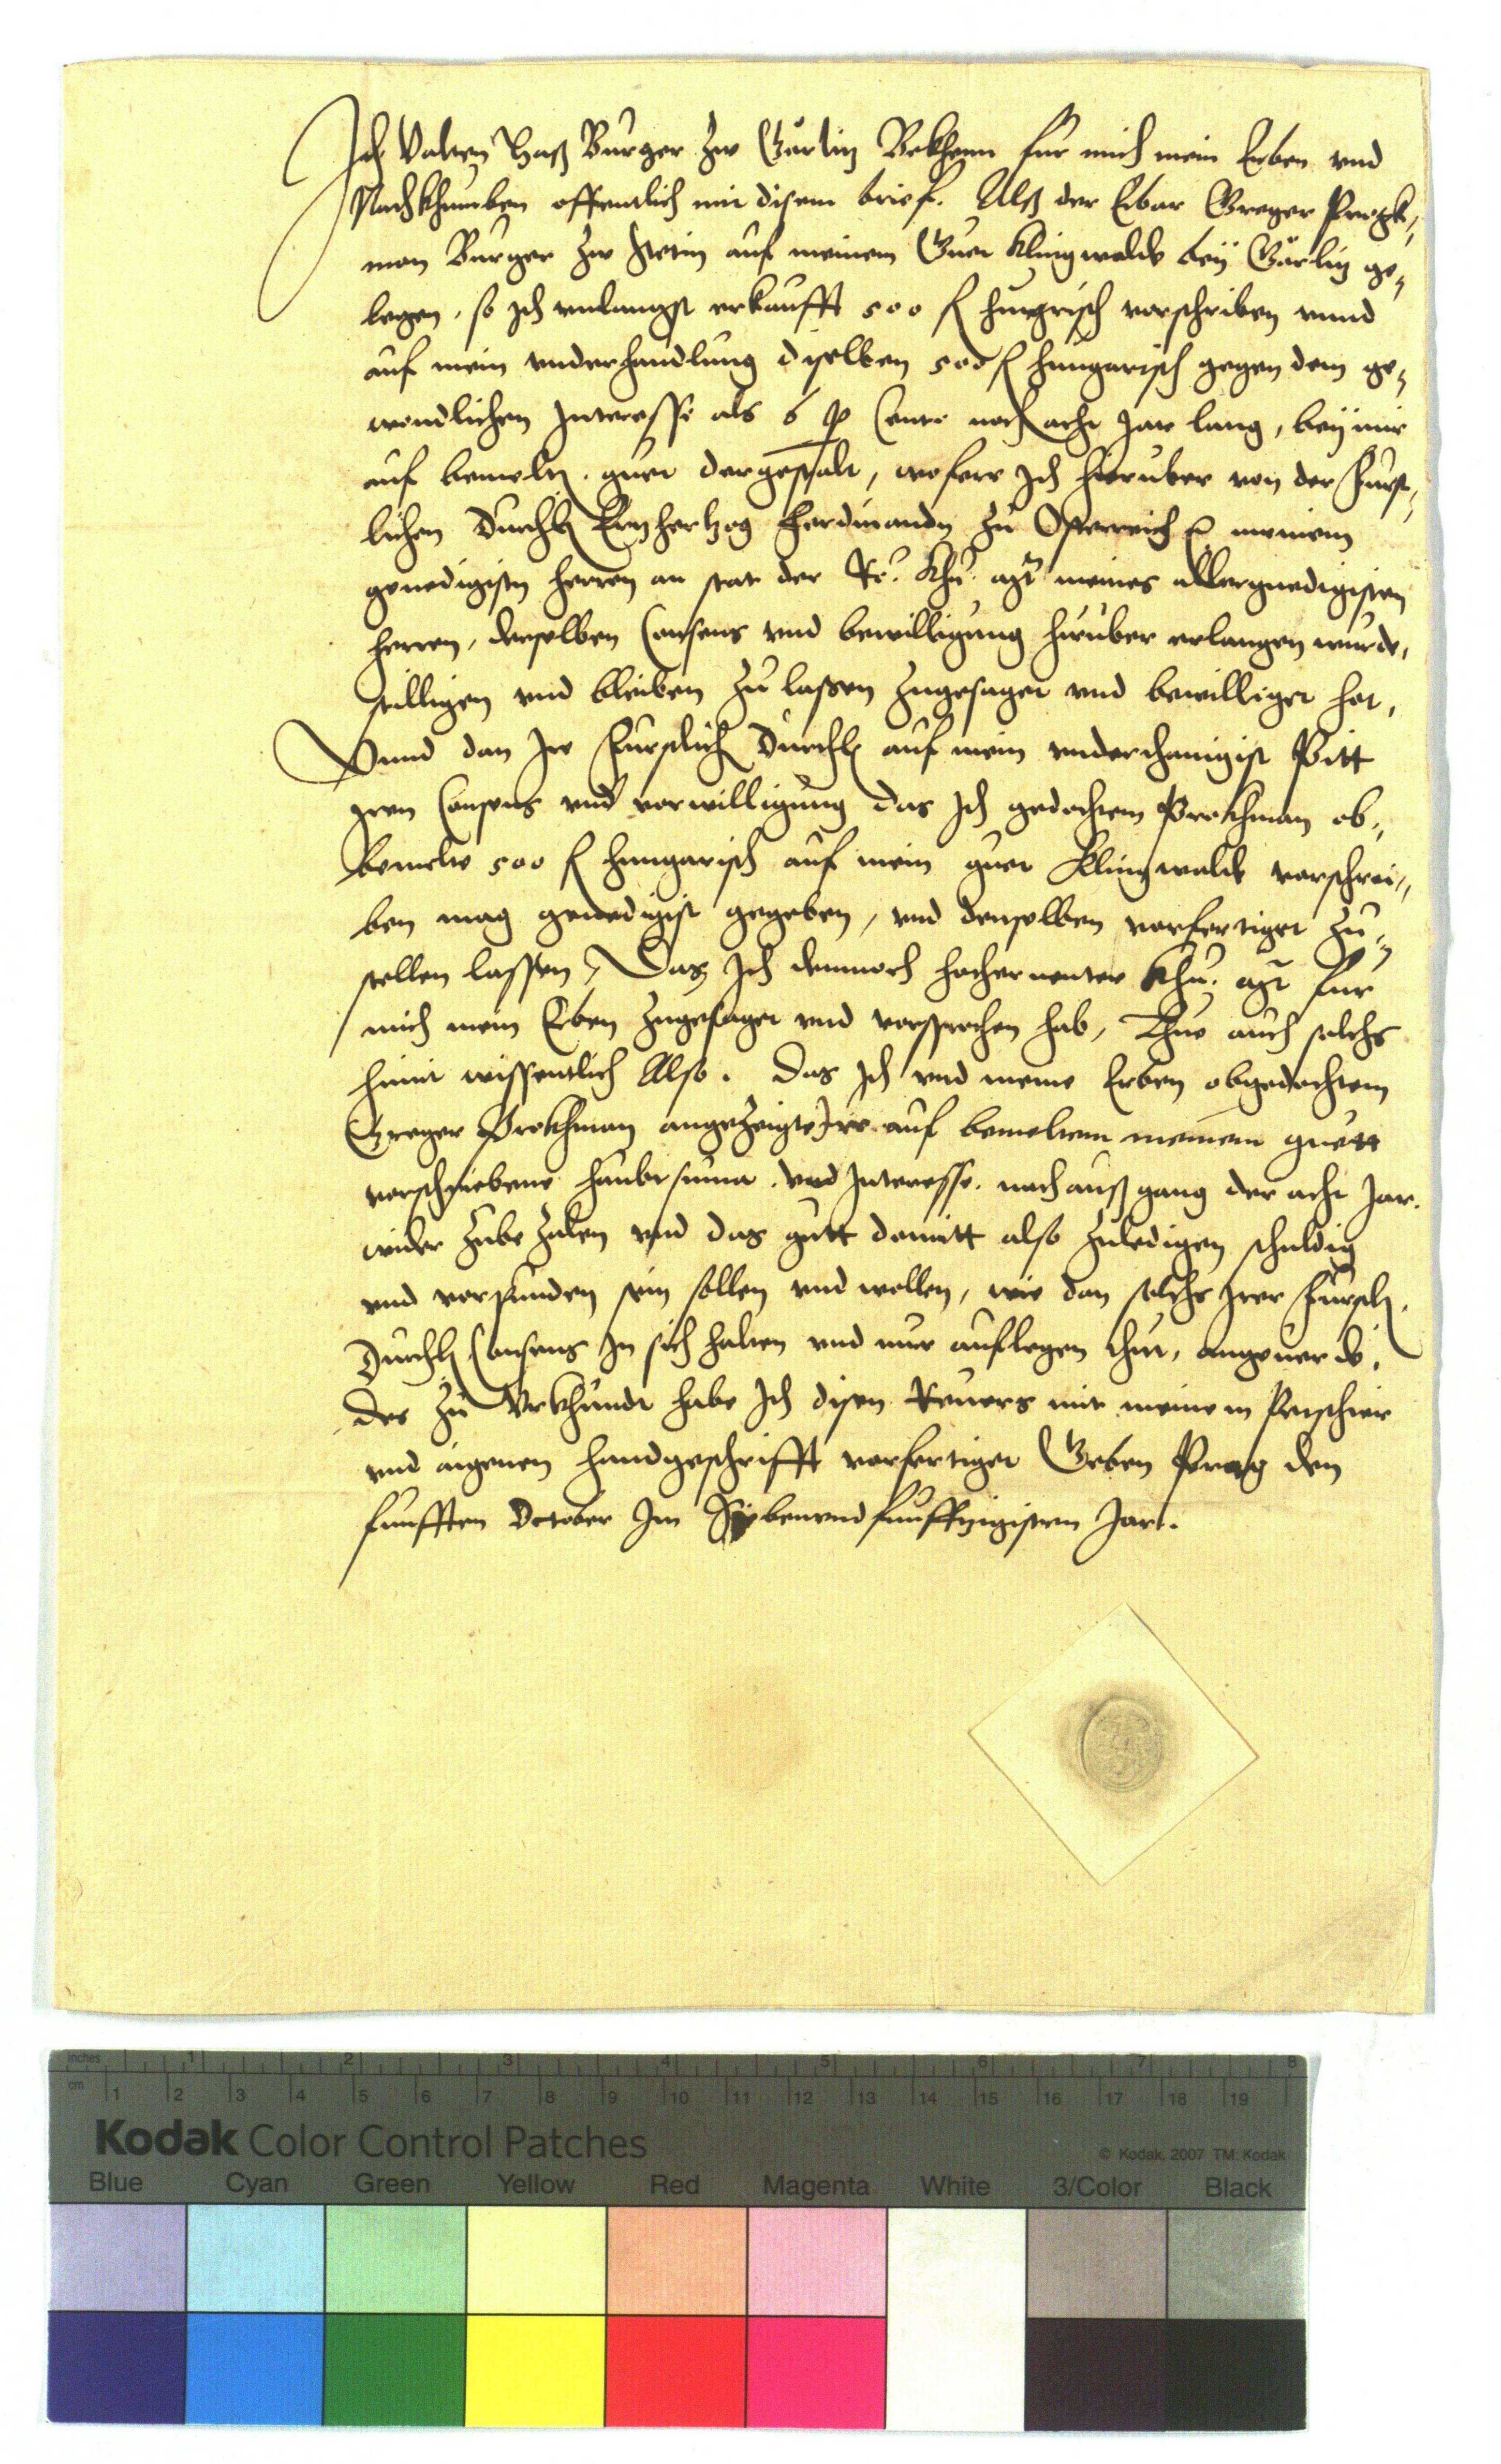 Ich Valten Haß Burger zw Gȯrlitz Bekhenn fur mich mein Erben vnd
Nachkhumben offentlich mit disem brief. Alß der Erbar Greger Prock,,
man Burger zw auf meinem Guet Klingwalde beÿ Gȯrlitz ge,,
legen, so Jch vnlangst erkaufft 500 fl hungrisch vorschriben vnnd
auf mein vnderhandlung diselben 500 fl hungarisch gegen dem ge,,
wendlichen Jnteresse als 6 p Cento noch acht Jar lang, beÿ mir
auf bemelte guet dergestalt, wofern Jch hieruber von der Furst,,
lichen Durchl Ertzhertzog Ferdinandn zu Osterreich meinem
genedigisten herren an stat der Rö. Khü. Mt meines allergnedigisten
herren, derselben Consens vnd bewilligung hieruber erlangen wurde,
stilligen vnd bleiben zu lassen zugesaget vnd bewilliget hat,
Vnnd dan Jre Furstlich Durchl auf mein vnderthenigist Pitt
Jren Consens vnd vorwilligung das Jch gedochtem Prokhman ob,,
bemelte 500 fl hungarisch auf mein guet Klingwalde vorschrei,,
ben mag genedigist gegeben, vnd denselben vorfertiget zu,,
stellen lassen, Das Jch demnoch hochernenter Khü. Mt fur
mich mein Erben zugesaget vnd versprochen hab, Thue auch solchs
himit wissentlich Also. Das Jch vnd meine Erben obgedochtem
Greger Prokhman angezeigte Jre auf bemeltem meinem guett
vorschriebene haubtsuma vnd Jnteresse nach außgang der acht Jar.
wider zubezalen vnd das gutt domitt also zuledigen schuldig
vnd verpunden sein sollen vnd wollen, wie dan solchs Jrer Furstl.
Durchl Consens Jn sich halten vnd mir auflegen thut, ongeuerde,
Des zu Vrkhundt habe Jch disen Reuers mit meinem Petschier
vnd aigenen handtgeschrifft vorfertiget Geben Prag den
funfften October Jm Siebenvndfunfftzigisten Jar.
inches 1 2 3 4 5 6 7 8
cm 1 2 3 4 5 6 7 8 9 10 11 12 13 14 15 16 17 18 19
Kodak Color Control Patches © Kodak, 2007 TM: Kodak
Blue Cyan Green Yellow Red Magenta White 3/Color Black